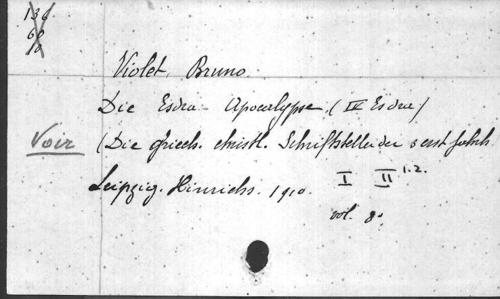 136
68
Violet, Bruno.
Die Esdra-Apocalypse (IV Esdra)
Voir (Die griech. christl. Schriftsteller der 3 erst Jahrh
Leipzig. Hinrichs. 1910. I II 1.2.
vol. 8°.